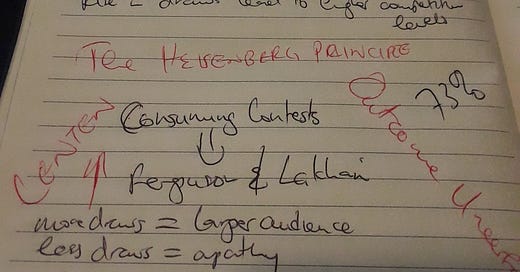 draws lead to higher competition
levels
The HEISENBERG PRINCIPLE
73%
Consuming Contests
Outcome
Ferguson & Lakhani
more draws = larger audience
less draws = apathy